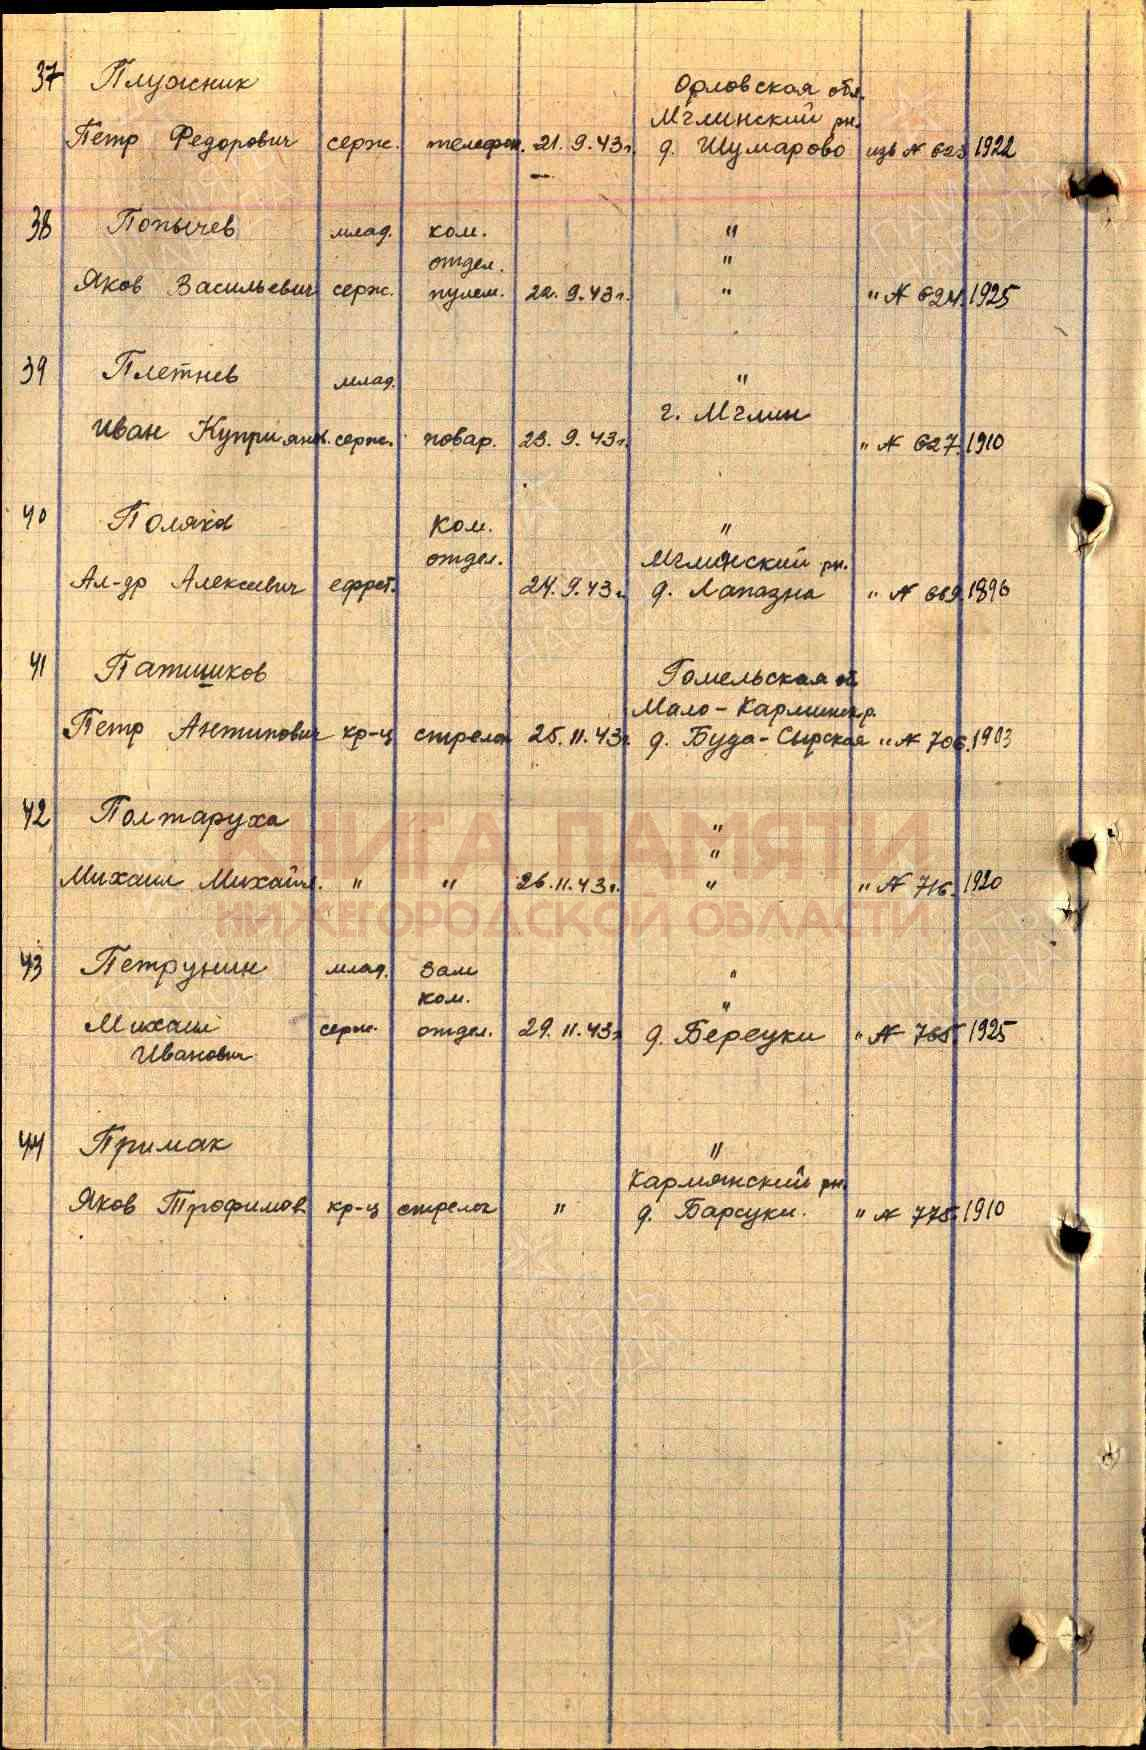 37 Плужник Орловская обл.
Мглинский рн.
Петр Федорович серж. телефон. 21.9.43г. д. Шумарово изв № 623 1922
38 Попычев млад. ком. "
отдел. "
Яков Васильевич серж. пулем. 22.9.43г. " " № 624. 1925
39 Плетнев млад. "
г. Мглин
Иван Куприян. серж. повар. 23.9.43г. " № 627. 1910
40 Поляка ком. "
отдел. Мглинский рн.
Ал-др Алексеевич ефрет. 24.9.43г. д. Лапазна " № 669 1896
41 Патишков Гомельская об.
Мало-Кармин р.
Петр Антипович кр-ц стрелок 25.11.43г. д. Буда-Сырская " № 706. 1903
42 Полтаруха "
"
Михаил Михайл. " " 26.11.43г. " " № 716. 1920
КНИГА ПАМЯТИ
НИЖЕГОРОДСКОЙ ОБЛАСТИ
43 Петрунин млад. Зам "
ком. "
Михаил серж. отдел. 29.11.43г д. Берецки " № 765. 1925
Иванович
44 Примак "
Кармянский рн.
Яков Трофимов. кр-ц стрелок " д. Барсуки. " № 775. 1910
ПАМЯТЬ
НАРОДА